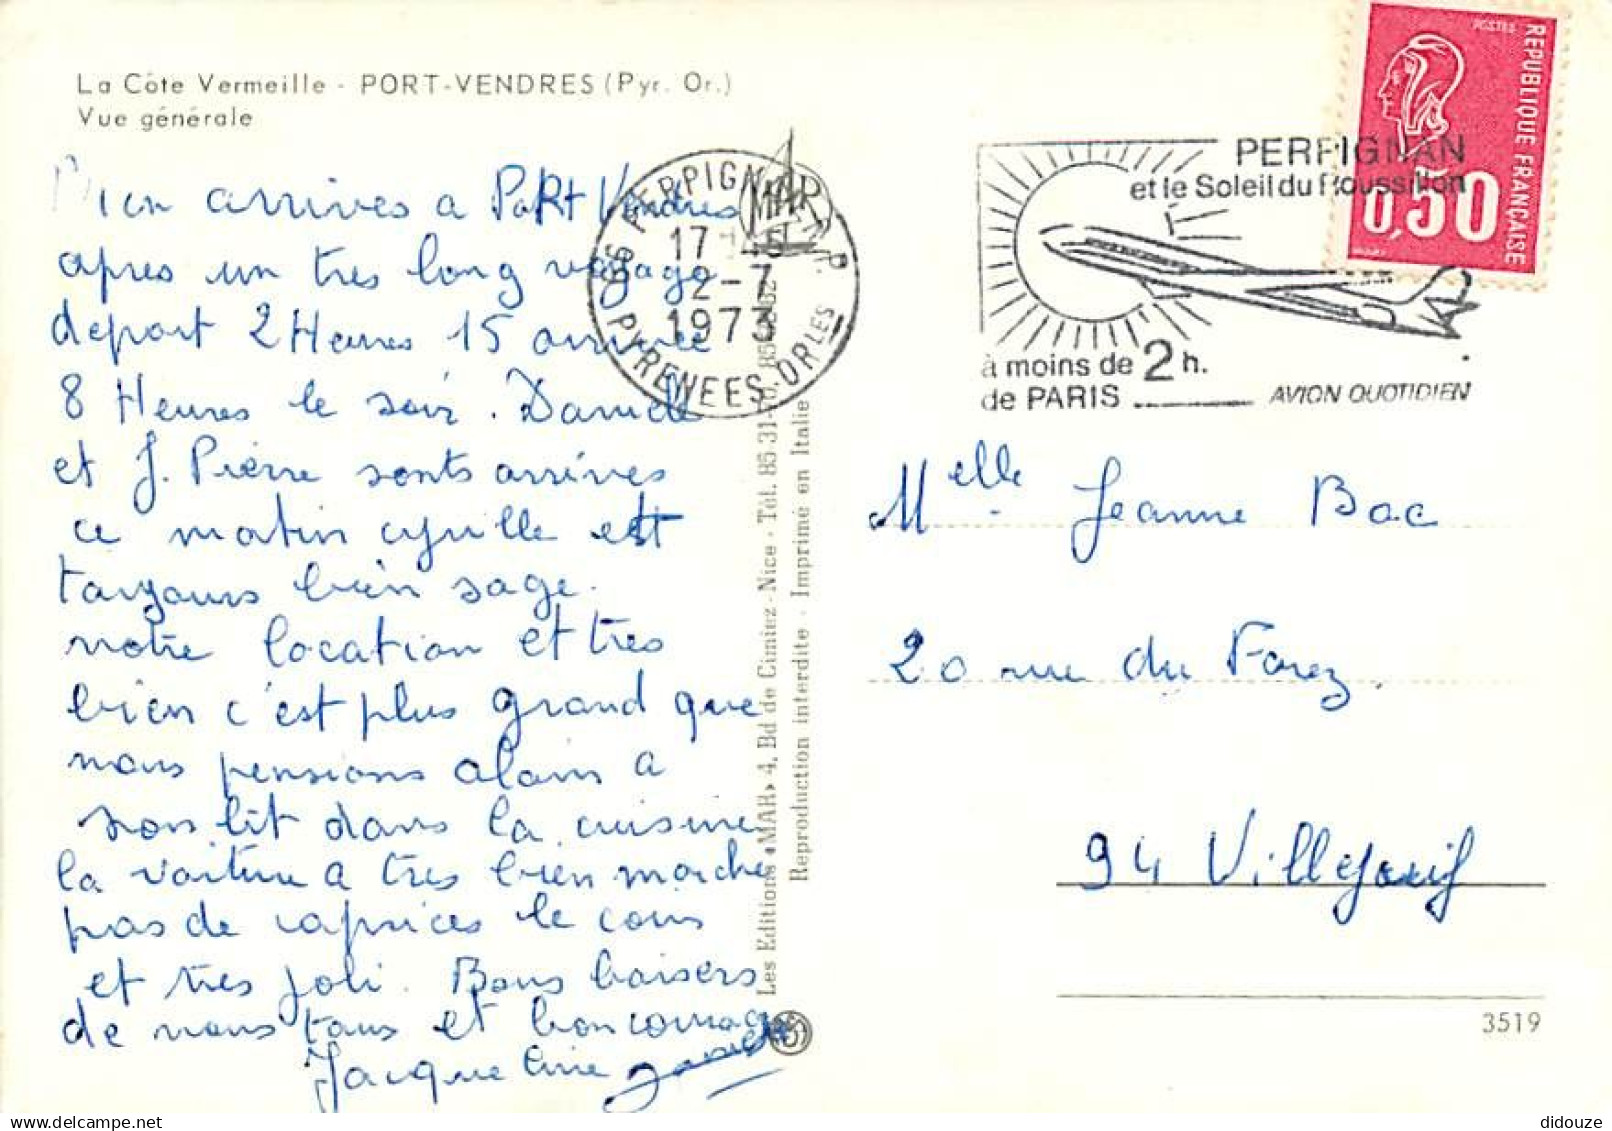 La Côte Vermeille - PORT-VENDRES (Pyr. Or.)
Vue générale
Bien arrives a Port Vendres
apres un tres long voyage
depart 2 Heures 15 arrivée
8 Heures le soir. Danielle
et J. Pierre sonts arrives
ce matin cyrille est
toujours bien sage.
notre location et tres
bien c'est plus grand que
nous pensions alain a
son lit dans la cuisine
la voiture a tres bien marche
pas de caprices le coin
et tres joli. Bons baisers
de nous tous et bon courage
Jacqueline
66 PERPIGNAN R.P.
17 45
2-7
1973
PYRENEES ORLES
MAR
Les Editions «MAR» 4, Bd de Cimiez - Nice - Tél. 85-31-
Reproduction interdite - Imprimé en Italie
PERPIGNAN
et le Soleil du Roussillon
à moins de 2 h.
de PARIS
AVION QUOTIDIEN
POSTES
REPUBLIQUE FRANÇAISE
0,50
Melle Jeanne Bac
20 rue du Forez
94 Villejuif
3519
didouze